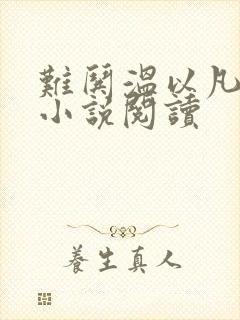 難鬨溫以凡
小說閱讀
養生真人